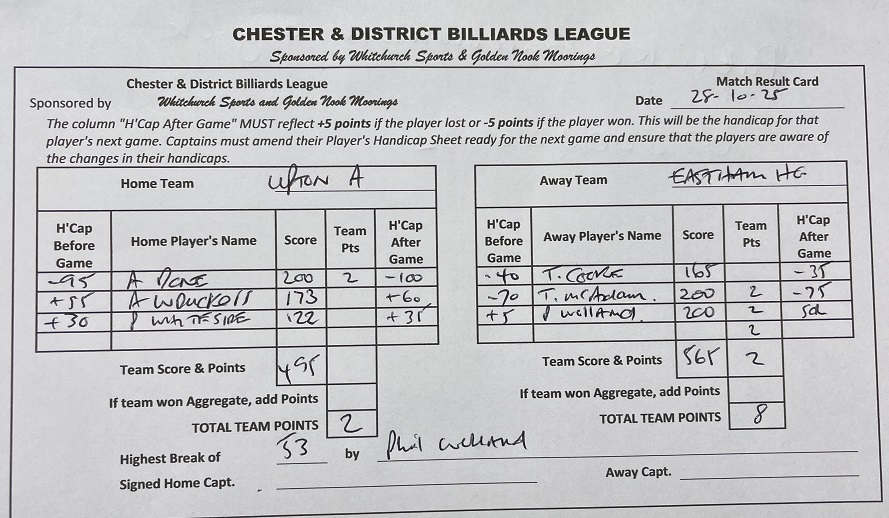 CHESTER & DISTRICT BILLIARDS LEAGUE
Sponsored by Whitchurch Sports & Golden Nook Moorings
Chester & District Billiards League
Match Result Card
Sponsored by Whitchurch Sports and Golden Nook Moorings
Date 28-10-25
The column "H'Cap After Game" MUST reflect +5 points if the player lost or -5 points if the player won. This will be the handicap for that
player's next game. Captains must amend their Player's Handicap Sheet ready for the next game and ensure that the players are aware of
the changes in their handicaps.
Home Team UPTON A
H'Cap Before Game Home Player's Name Score Team Pts H'Cap After Game
-95 A 200 2 -100
+55 A 173 +60
+30 P WHITESIDE 122 +35
Team Score & Points 495
If team won Aggregate, add Points
TOTAL TEAM POINTS 2
Away Team EASTHAM HG
H'Cap Before Game Away Player's Name Score Team Pts H'Cap After Game
-40 T. COOKE 165 -35
-70 T. McAdam. 200 2 -75
+5 P WELLAND. 200 2
2
Team Score & Points 565 2
If team won Aggregate, add Points
TOTAL TEAM POINTS 8
Highest Break of 53 by Phil WELLAND
Signed Home Capt.
Away Capt.